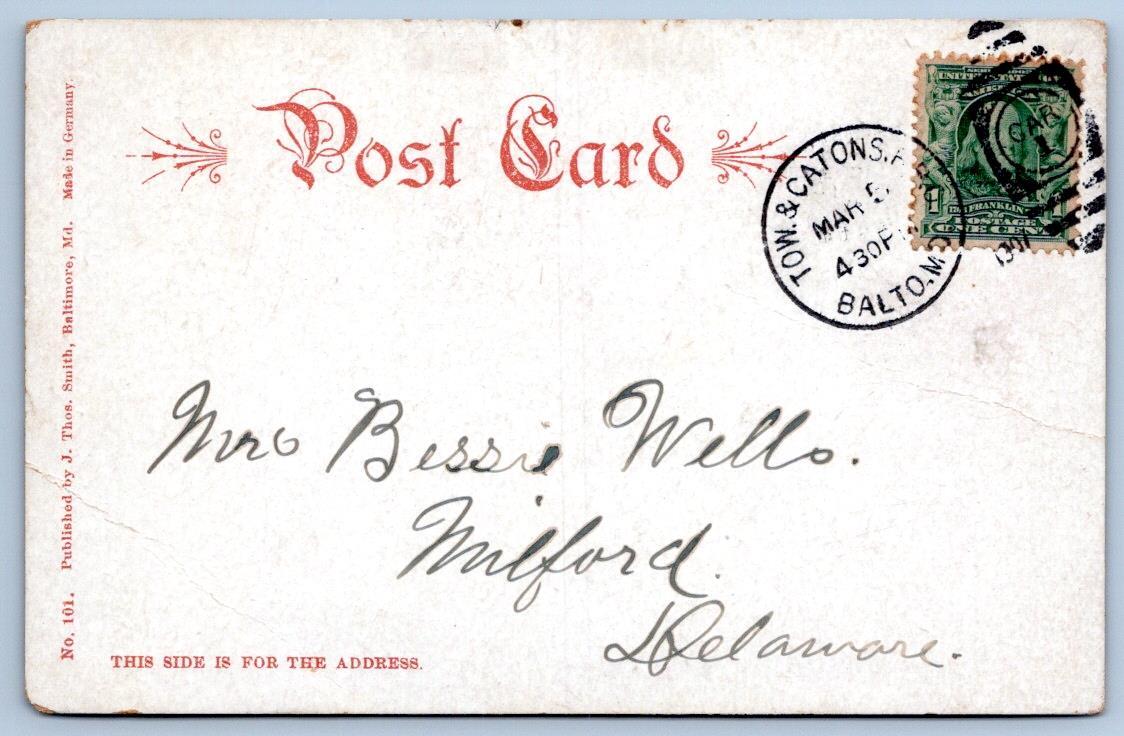 Post Card
UNITED STATES
AMERICA
FRANKLIN
POSTAGE
ONE CENT
TOW. & CATONS.
MAR 5
4 30 P
BALTO. MD
CAR
1
1907
Mrs Bessie Wells.
Milford.
Delaware.
THIS SIDE IS FOR THE ADDRESS.
No. 101. Published by J. Thos. Smith, Baltimore, Md. Made in Germany.